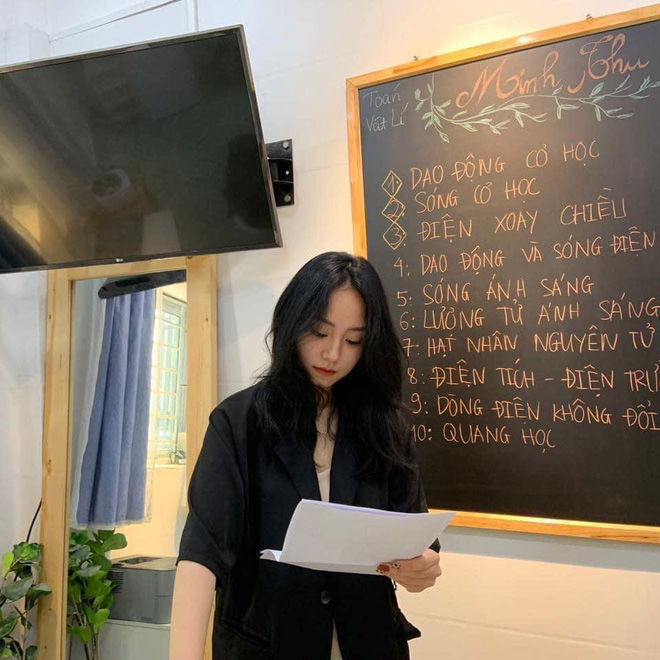 LG
Toán
Vật Lí
Minh Thu
1 DAO ĐỘNG CƠ HỌC
2 SÓNG CƠ HỌC
3 ĐIỆN XOAY CHIỀU
4: DAO ĐỘNG VÀ SÓNG ĐIỆN
5: SÓNG ÁNH SÁNG
6: LƯỢNG TỬ ÁNH SÁNG
7: HẠT NHÂN NGUYÊN TỬ
8: ĐIỆN TÍCH - ĐIỆN TRƯ
9: DÒNG ĐIỆN KHÔNG ĐỔI
10: QUANG HỌC